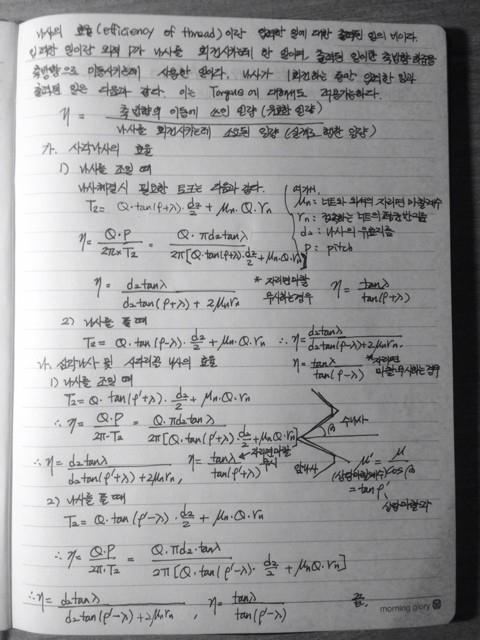 나사의 효율(efficiency of thread)이란 입력한 일에 대한 출력된 일의 비이다.
입력한 일이란 외력 P가 나사를 회전시키는데 한 일이며, 출력된 일이란 축방향 하중을
축방향으로 이동시키는데 사용한 일이다. 나사가 1회전하는 동안 입력한 일과
출력된 일은 다음과 같다. 이는 Torque에 대해서도 적용가능하다.
η = 축방향의 이동에 쓰인 일량(유효한 일량) / 나사를 회전시키는데 소요된 일량(실제로 행한 일량)
가. 사각나사의 효율
1) 나사를 조일 때
나사체결시 필요한 토크는 다음과 같다.
T₂ = Q·tan(ρ+λ)·d₂/2 + μn·Q·rn
여기서,
μn : 너트와 와셔의 자리면 마찰계수
rn : 접촉하는 너트의 반지름
d₂ : 나사의 유효지름
p : pitch
η = Q·P / 2π×T₂ = Q·πd₂tanλ / 2π[Q·tan(ρ+λ)·d₂/2 + μn·Q·rn]
η = d₂tanλ / d₂tan(ρ+λ) + 2μnrn
* 자리면마찰 무시하는경우
η = tanλ / tan(ρ+λ)
2) 나사를 풀 때
T₂ = Q·tan(ρ-λ)·d₂/2 + μn·Q·rn ∴ η = d₂tanλ / d₂tan(ρ-λ)+2μnrn.
η = tanλ / tan(ρ-λ) *자리면 마찰무시하는경우
나. 삼각나사 및 사다리꼴 나사의 효율
1) 나사를 조일 때
T₂ = Q·tan(ρ'+λ)·d₂/2 + μn·Q·rn
∴ η = Q·P / 2π·T₂ = Q·πd₂tanλ / 2π[Q·tan(ρ'+λ)·d₂/2 + μnQ·rn]
수나사
β
암나사
∴ η = d₂tanλ / d₂tan(ρ'+λ)+2μnrn, η = tanλ / tan(ρ'+λ) 자리면마찰 무시
μ' = μ / cosβ
(상당마찰계수)
= tanρ'
상당마찰각
2) 나사를 풀 때
T₂ = Q·tan(ρ'-λ)·d₂/2 + μn·Q·rn
∴ η = Q·P / 2π·T₂ = Q·πd₂·tanλ / 2π[Q·tan(ρ'-λ)·d₂/2 + μnQ·rn]
∴ η = d₂tanλ / d₂tan(ρ'-λ)+2μnrn, η = tanλ / tan(ρ'-λ) 끝.
morning glory